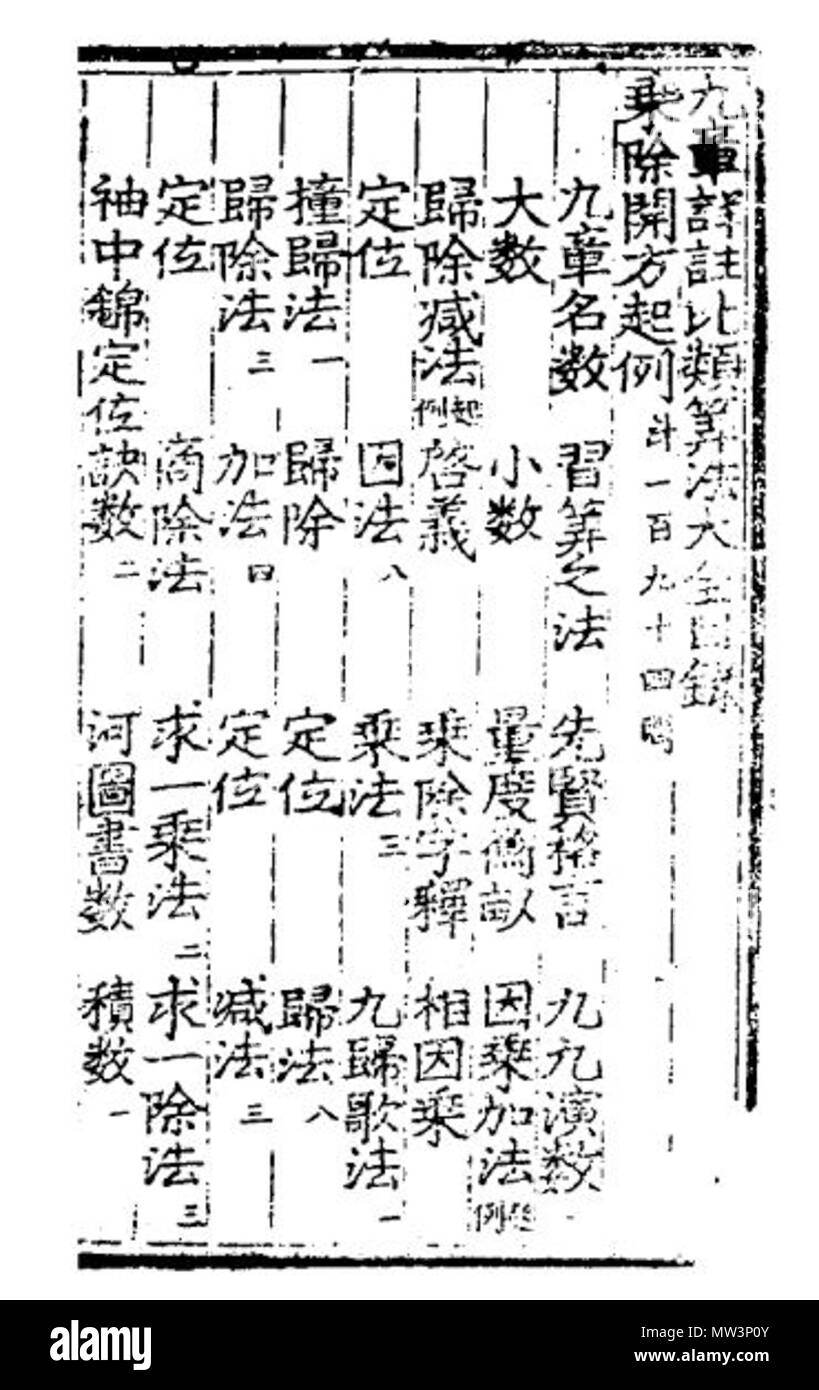 九章詳註比類算法大全目錄
乘除開方起例 計一百九十四問
九章名数 習算之法 先賢格言 九九演数
大数 小数 量度衡畝 因乗加法 起例
歸除减法 起例 啓義 乗除字釋 相因乗
定位 因法 八 乗法 三 九歸歌法 一
撞歸法 一 歸除 定位 歸法 八
歸除法 三 加法 四 定位 减法 三
定位 商除法 求一乗法 二 求一除法 三
袖中錦定位訣数 二 河圖書数 積数 一
alamy
Image ID: MW3P0Y
www.alamy.com